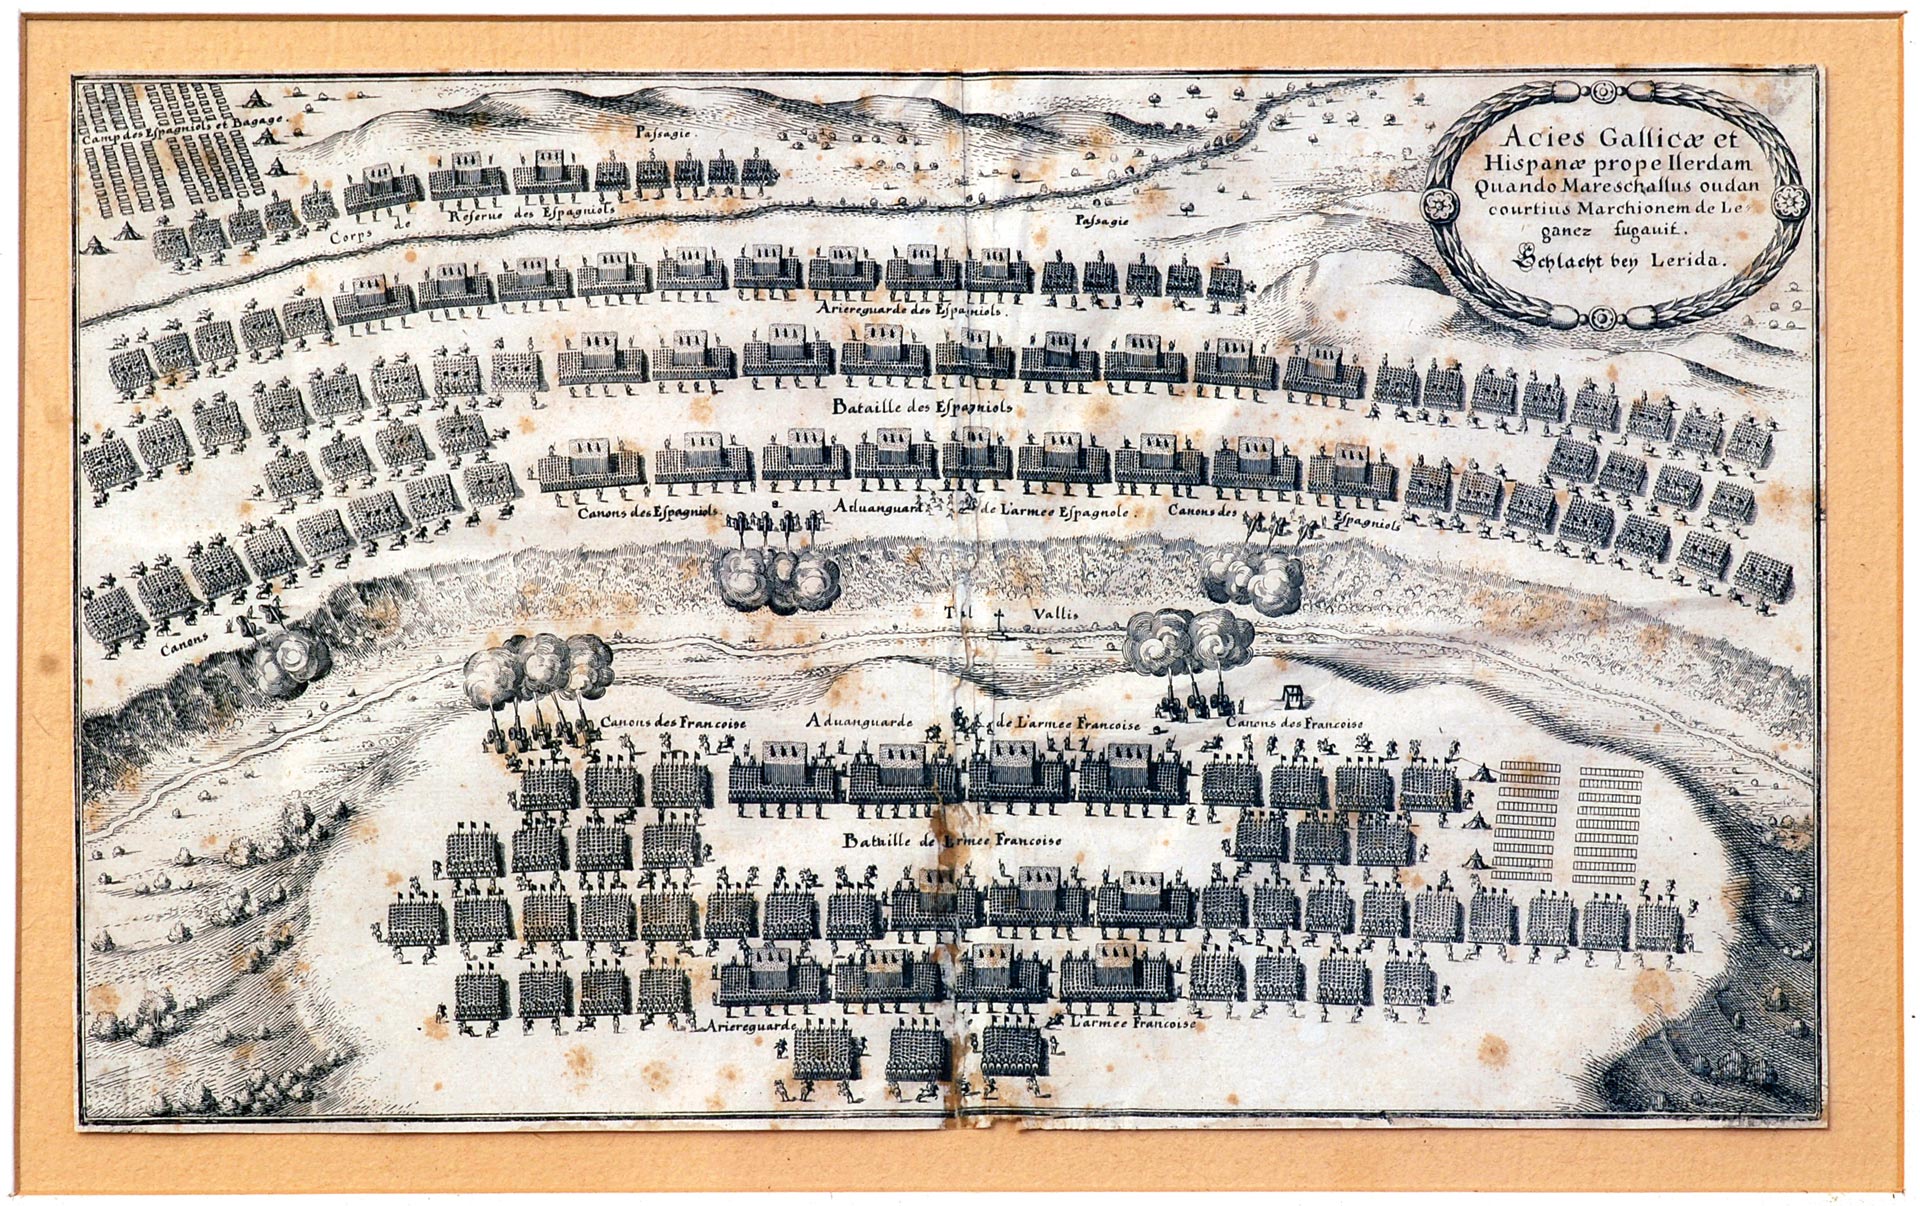 Camp des Espagniols et Bagage
Passagie.
Corps de Reserue des Espagniols
Passagie
Acies Gallicæ et
Hispanæ prope Ilerdam
Quando Mareschallus oudan
courtius Marchionem de Le-
ganez fugauit.
Schlacht bey Lerida.
Ariereguarde des Espagniols.
Bataille des Espagniols
Canons des Espagniols.
Aduanguard de L'armee Espagnole.
Canons des Espagniols
Canons
Tal Vallis
Canons des Francoise
Aduanguarde de L'armee Francoise
Canons des Francoise
Bataille de Lrmee Francoise
Ariereguarde L'armee Francoise